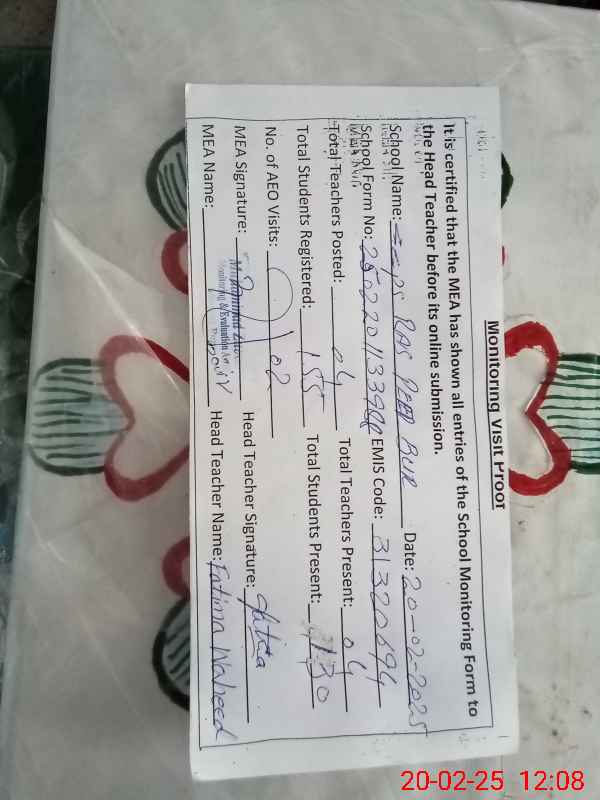 Monitoring Visit Proof
It is certified that the MEA has shown all entries of the School Monitoring Form to
the Head Teacher before its online submission.
School Name: GGPS RAS PEER BUR Date: 20-02-2025
School Form No: EMIS Code: 31320694
Total Teachers Posted: 04 Total Teachers Present: 04
Total Students Registered: 155 Total Students Present: 130
No. of AEO Visits: 02
MEA Signature: Head Teacher Signature:
Muhammad
Monitoring & Evaluation
MEA Name: Head Teacher Name: Fatima Waheed
20-02-25 12:08